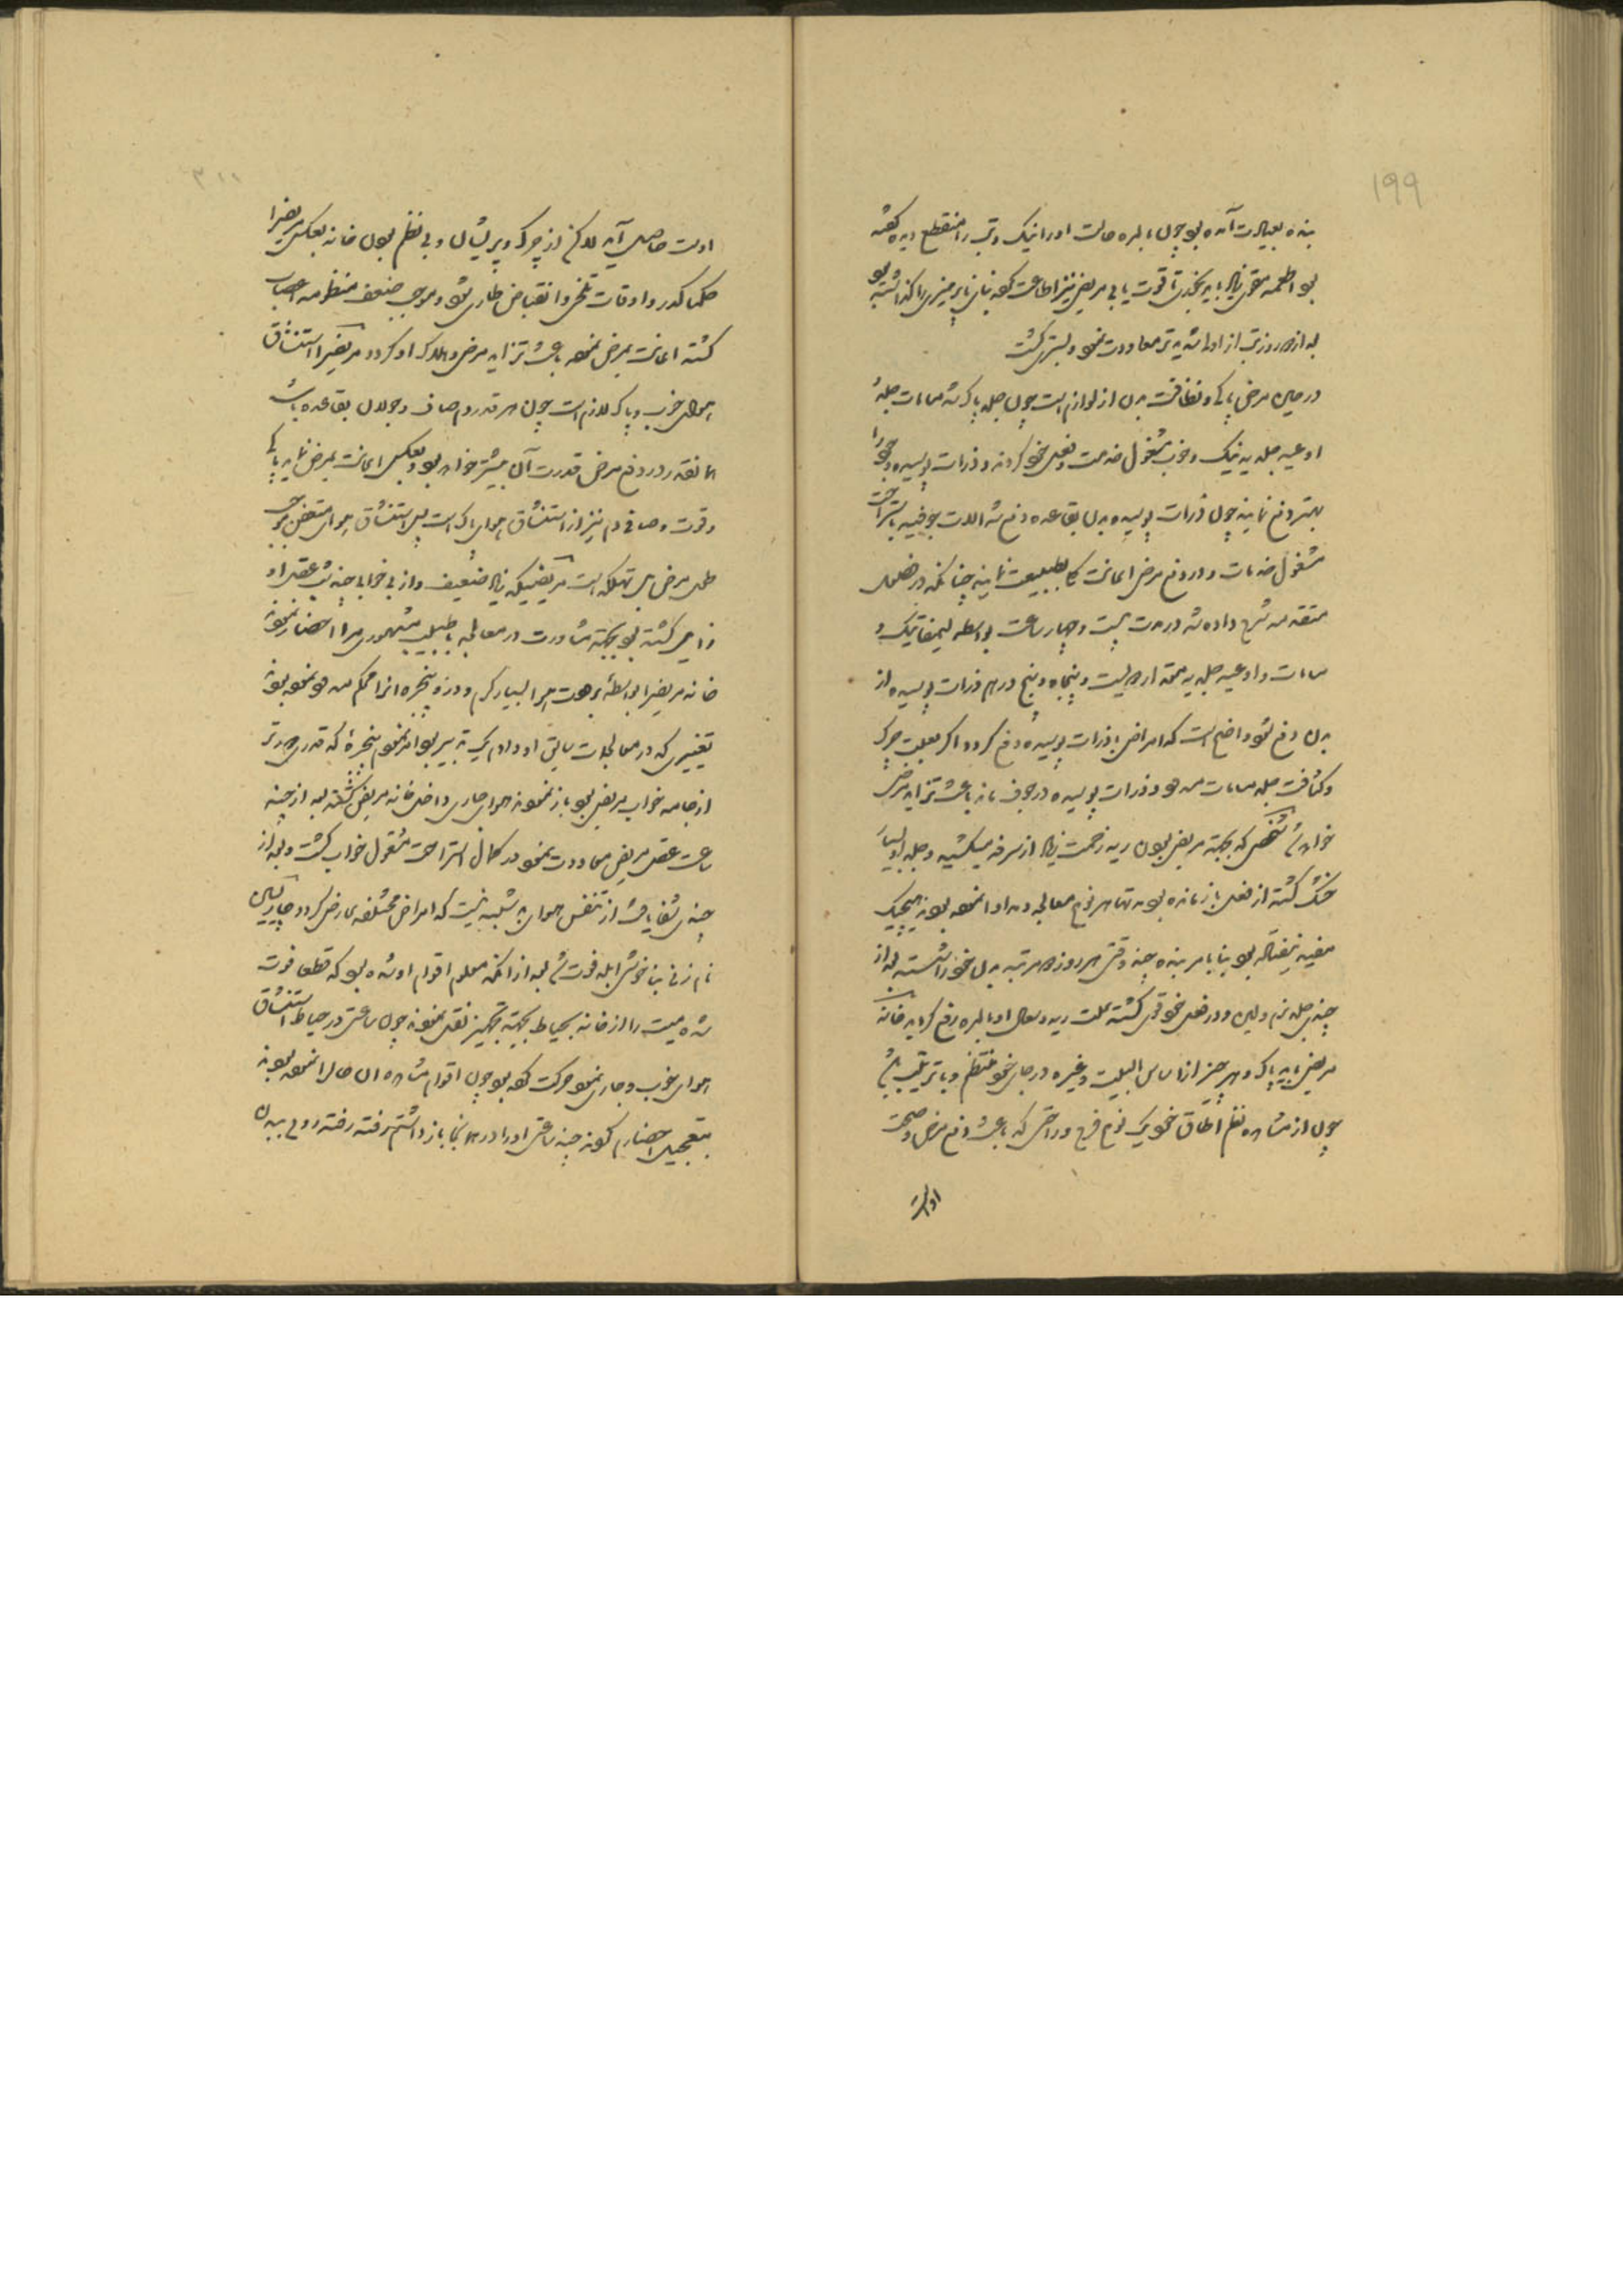 ۱۹۹
بنده بعیادت آمده بود چون بالمره حالت او را نیک و تب را منقطع دیده گفته
بود اطعمه مقوی زیاد باید بخوری تا قوت یابی مریض نیز اطاعت کرده بنای ناپرهیزی را گذاشته بود
بعد از دو روز تب از اول شدیدتر معاودت نمود و بستری گشت
در حین مرض پاکی و نظافت بدن از لوازم است چون جلد پاک شد مسامات جلد
اوعیه جلدیه نیک و خوب مشغول خدمت و فعل خود گردند و ذرات پوسیده و خود را
بهتر دفع نمایند چون ذرات پوسیده بدن بقاعده دفع شد آلات جوفیه باستراحت
مشغول خدمات و در دفع مرض اعانت کلی بطبیعت نمایند چنانکه در فصل
متقدمه شرح داده شد در مدت بیست و چهار ساعت بواسطه لیمفاتیک و
مسامات و اوعیه جلدیه مقدار دویست و پنجاه و پنج درهم ذرات پوسیده از
بدن دفع شود واضح است که امراض با ذرات پوسیده دفع گردد اگر بعلت چرک
و کثافت جلد مسامات مسدود و ذرات پوسیده در جوف ماند باعث تزاید مرض
خواهد شد شخصی که بجهة مریض بودن ریه زحمت زیاد از سرفه میکشید و جلد او بسیار
خشک گشته از فعل باز مانده بود مدتها هر نوع معالجه در او نموده بودند هیچیک
مفید نیفتاده بود بنا بامر بنده چند وقتی هر روز دو مرتبه بدن خود را شسته بعد از
چندی جلد نرم و لین و در فعل خود قوی گشته علت ریه و سعال او بالمره رفع گردید خانه
مریض باید پاک و هر چیز از اساس البیت و غیره در جای خود منتظم و با ترتیب باشد
چون از مشاهده نظم اطاق خود یک نوع فرح و راحتی که باعث دفع مرض و صحت
اوست
۲۰۰
اوست حاصل آید لاکن از چرک و پریشان و بی نظم بودن خانه بعکس مریض را
حکماً کدر و اوقات تلخی و انقباض طاری شود و موجب ضعف منظومه اعصاب
گشته اعانت بمرض نموده باعث تزاید مرض و هلاک او گردد مریض را استنشاق
هوای خوب و پاک لازم است چون هر قدر دم صاف و جولان بقاعده باشد
همانقدر در دفع مرض قدرت آن بیشتر خواهد بود و بعکس اعانت بمرض نماید پاکی
و قوت و صافی دم نیز از استنشاق هوای پاک است پس استنشاق هوای متعفن موجب
طول مرض بل تهلکه است مریضی که زیاد ضعیف و از بی خوابی چند شب عقل او
زایل گشته بود بجهة مشاورت در معالجه با طبیب مشهوری مرا احضار نمودند
خانه مریض را بواسطه برودت هوا بسیار گرم و درز و پنجره ها را محکم مسدود نموده بودند
تغییری که در معالجات سابق او دادم یک تدبیر بود امر نمودم پنجره که قدری دورتر
از جامه خواب مریض بود باز نمودند هوای جاری داخل خانه مریض گشته بعد از چند
ساعت عقل مریض معاودت نمود در کمال استراحت مشغول خواب گشت و بعد از
چندی شفا یافت از تنفس هوای بد شبهه نیست که امراض مختلفه عارض گردد
نام زنی بناخوشی آبله فوت شد بعد از آنکه معلوم اقوام او شده بود که قطعاً فوت
شده میت را از خانه بحیاط بجهة تجهیز نقل نمودند چون ساعتی در حیاط استنشاق
هوای خوب و جاری نمود حرکت کرده بود چون اقوام مشاهده این حال را نموده بودند
بتعجیل احضارم کردند چند ساعتی او را در آنجا باز داشتم رفته رفته روی ببدن